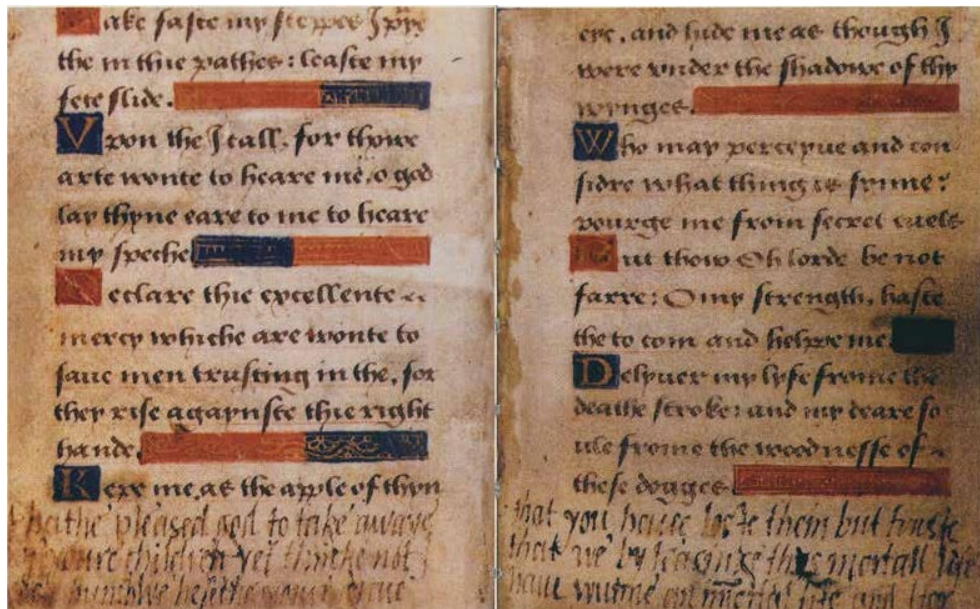 Make faste my steppes J
the in thie pathes: leaste my
fete slide.
Vpon the J call, for thowe
arte wonte to heare me, o god
lay thyne eare to me to heare
my speche
Declare thie excellente
mercy whiche are wonte to
saue men trusting in the, for
they rise agaynste thie right
hande.
Kepe me, as the apple of thyn
hathe pleased god to take awaye
youre children yet thincke not
eye, and hide me as though J
were vnder the shadowe of thy
wynges.
Who may perceyue and con-
sidre what thing is synne?
pourge me from secret euels
But thow Oh lorde be not
farre: O my strength, haste
the to com and helppe me.
Delyuer my lyfe frome the
deathe stroke: and my deare so
ule frome the woodnesse of
these dogges.
that you haue loste them but truste
that we by leasinge this mortall life
haue wunne life and